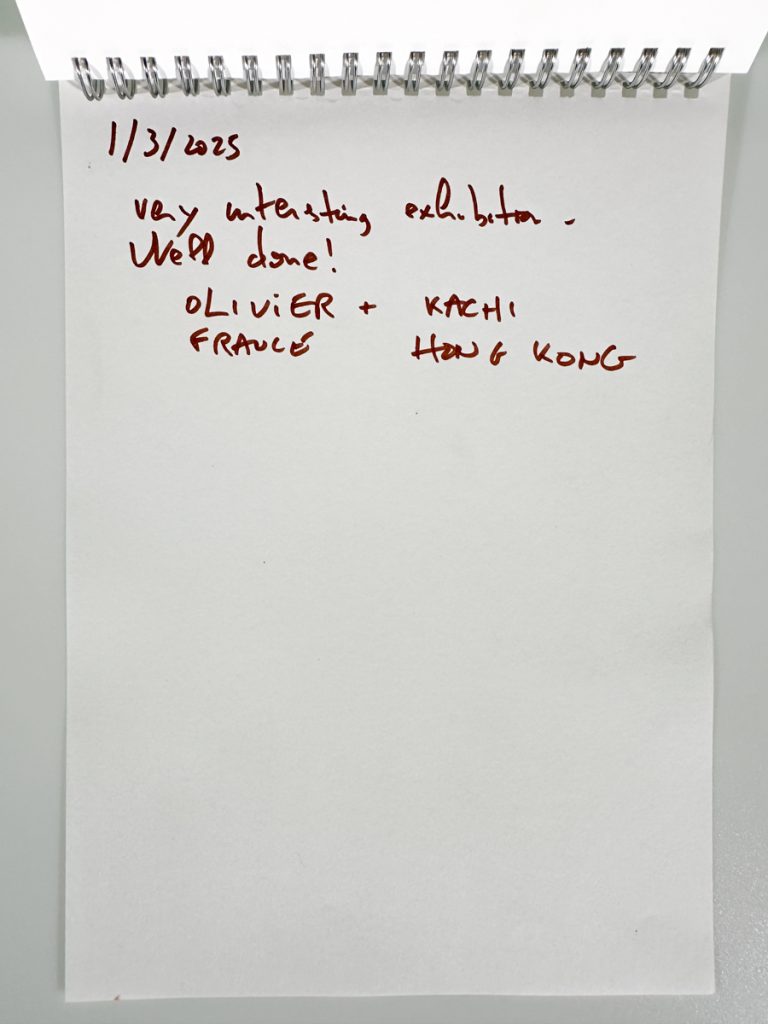 1/3/2025
very intersting exhibition.
Well done!
OLIVIER + KACHI
FRANCE HONG KONG